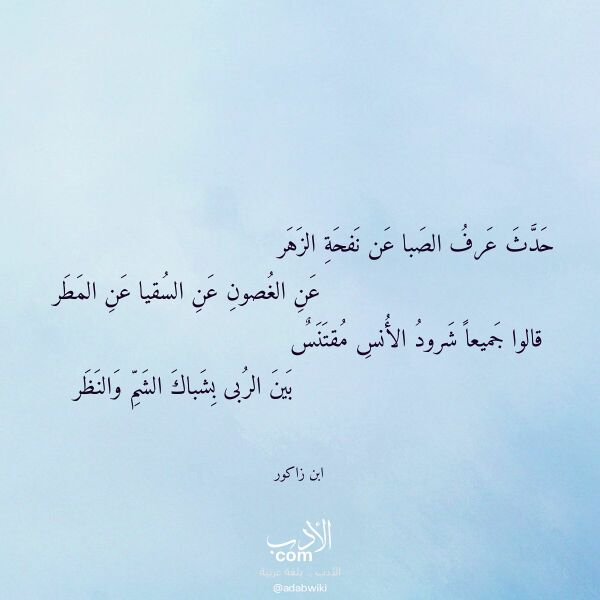 حَدَّثَ عَرفُ الصَبا عَن نَفحَةِ الزَهَر
عَنِ الغُصونِ عَنِ السُقيا عَنِ المَطَر
قالوا جَميعاً شَرودُ الأُنسِ مُقتَنَسٌ
بَينَ الرُبى بِشَباكَ الشَمِّ وَالنَظَر
ابن زاكور
الأدب
com
الأدب .. بلغة عربية
@adabwiki